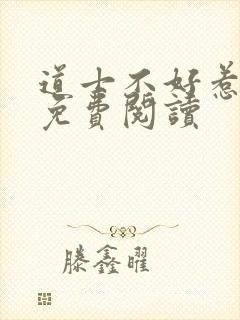 道士不好惹
免費閱讀
滕鑫曜